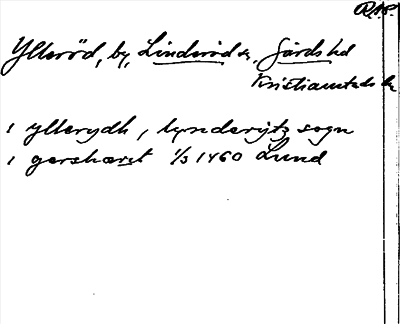 R.A.P.
Ylleröd, by, Linderöd s, Gärds hd
Kristianstads l.
i yllerydh, lynderytz sogn
i gershæret 1/3 1460 Lund